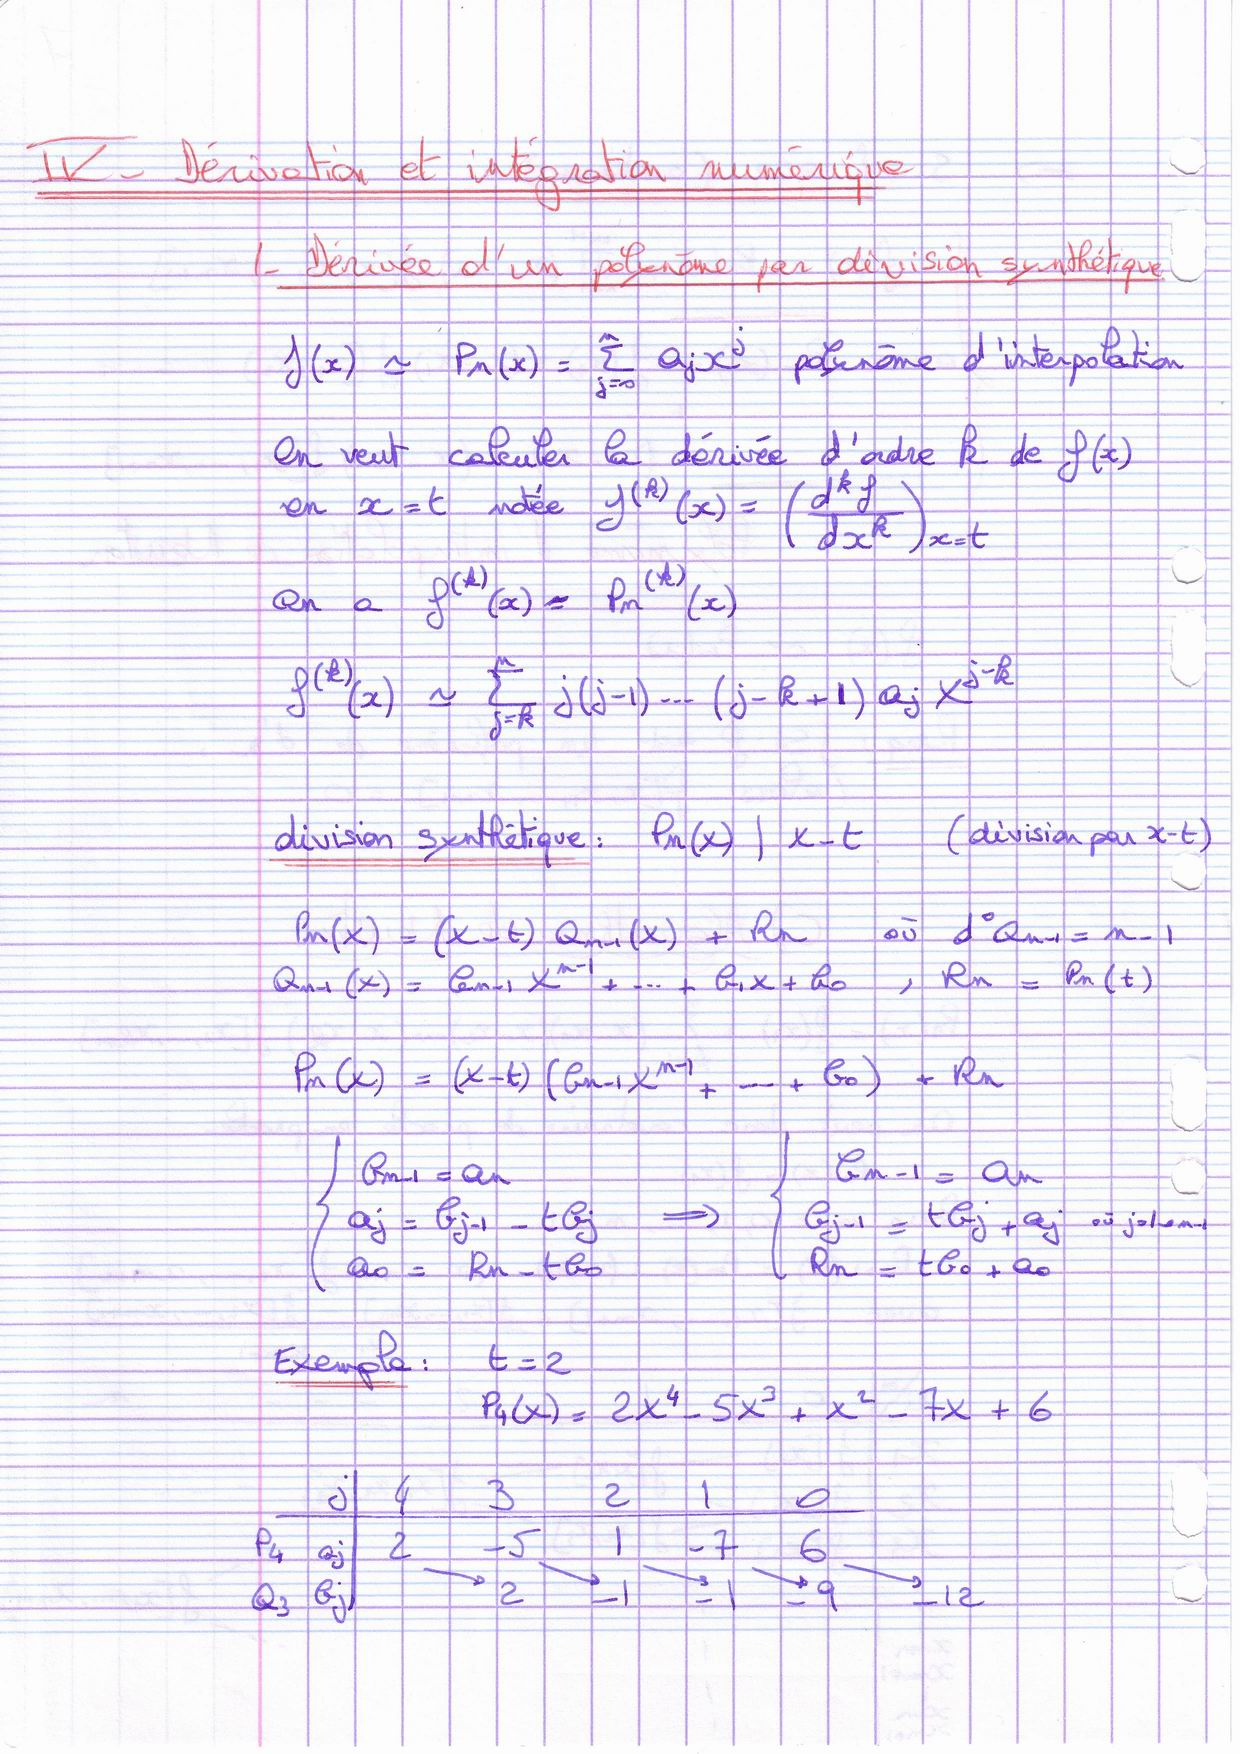 IV - Dérivation et intégration numérique
1- Dérivée d'un polynôme par division synthétique
f(x) ≃ Pn(x) = Σ_{j=0}^{n} aj x^j polynôme d'interpolation
on veut calculer la dérivée d'ordre k de f(x)
en x = t notée f^(k)(x) = (d^k f / dx^k)_{x=t}
on a f^(k)(x) = Pn^(k)(x)
f^(k)(x) ≃ Σ_{j=k}^{n} j(j-1) ... (j-k+1) aj x^{j-k}
division synthétique : Pn(x) | x-t (division par x-t)
Pn(x) = (x-t) Qn-1(x) + Rn où d°Qn-1 = n-1
Qn-1(x) = bn-1 x^{n-1} + ... + b1x + b0 , Rn = Pn(t)
Pn(x) = (x-t) (bn-1 x^{n-1} + ... + b0) + Rn
{ bn-1 = an { bn-1 = an
aj = bj-1 - tbj ⟹ bj-1 = tbj + aj où j=1 à n-1
a0 = Rn - tb0 Rn = tb0 + a0
Exemple : t = 2
P4(x) = 2x^4 - 5x^3 + x^2 - 7x + 6
j 4 3 2 1 0
P4 aj 2 -5 1 -7 6
Q3 bj 2 -1 -1 -9 -12